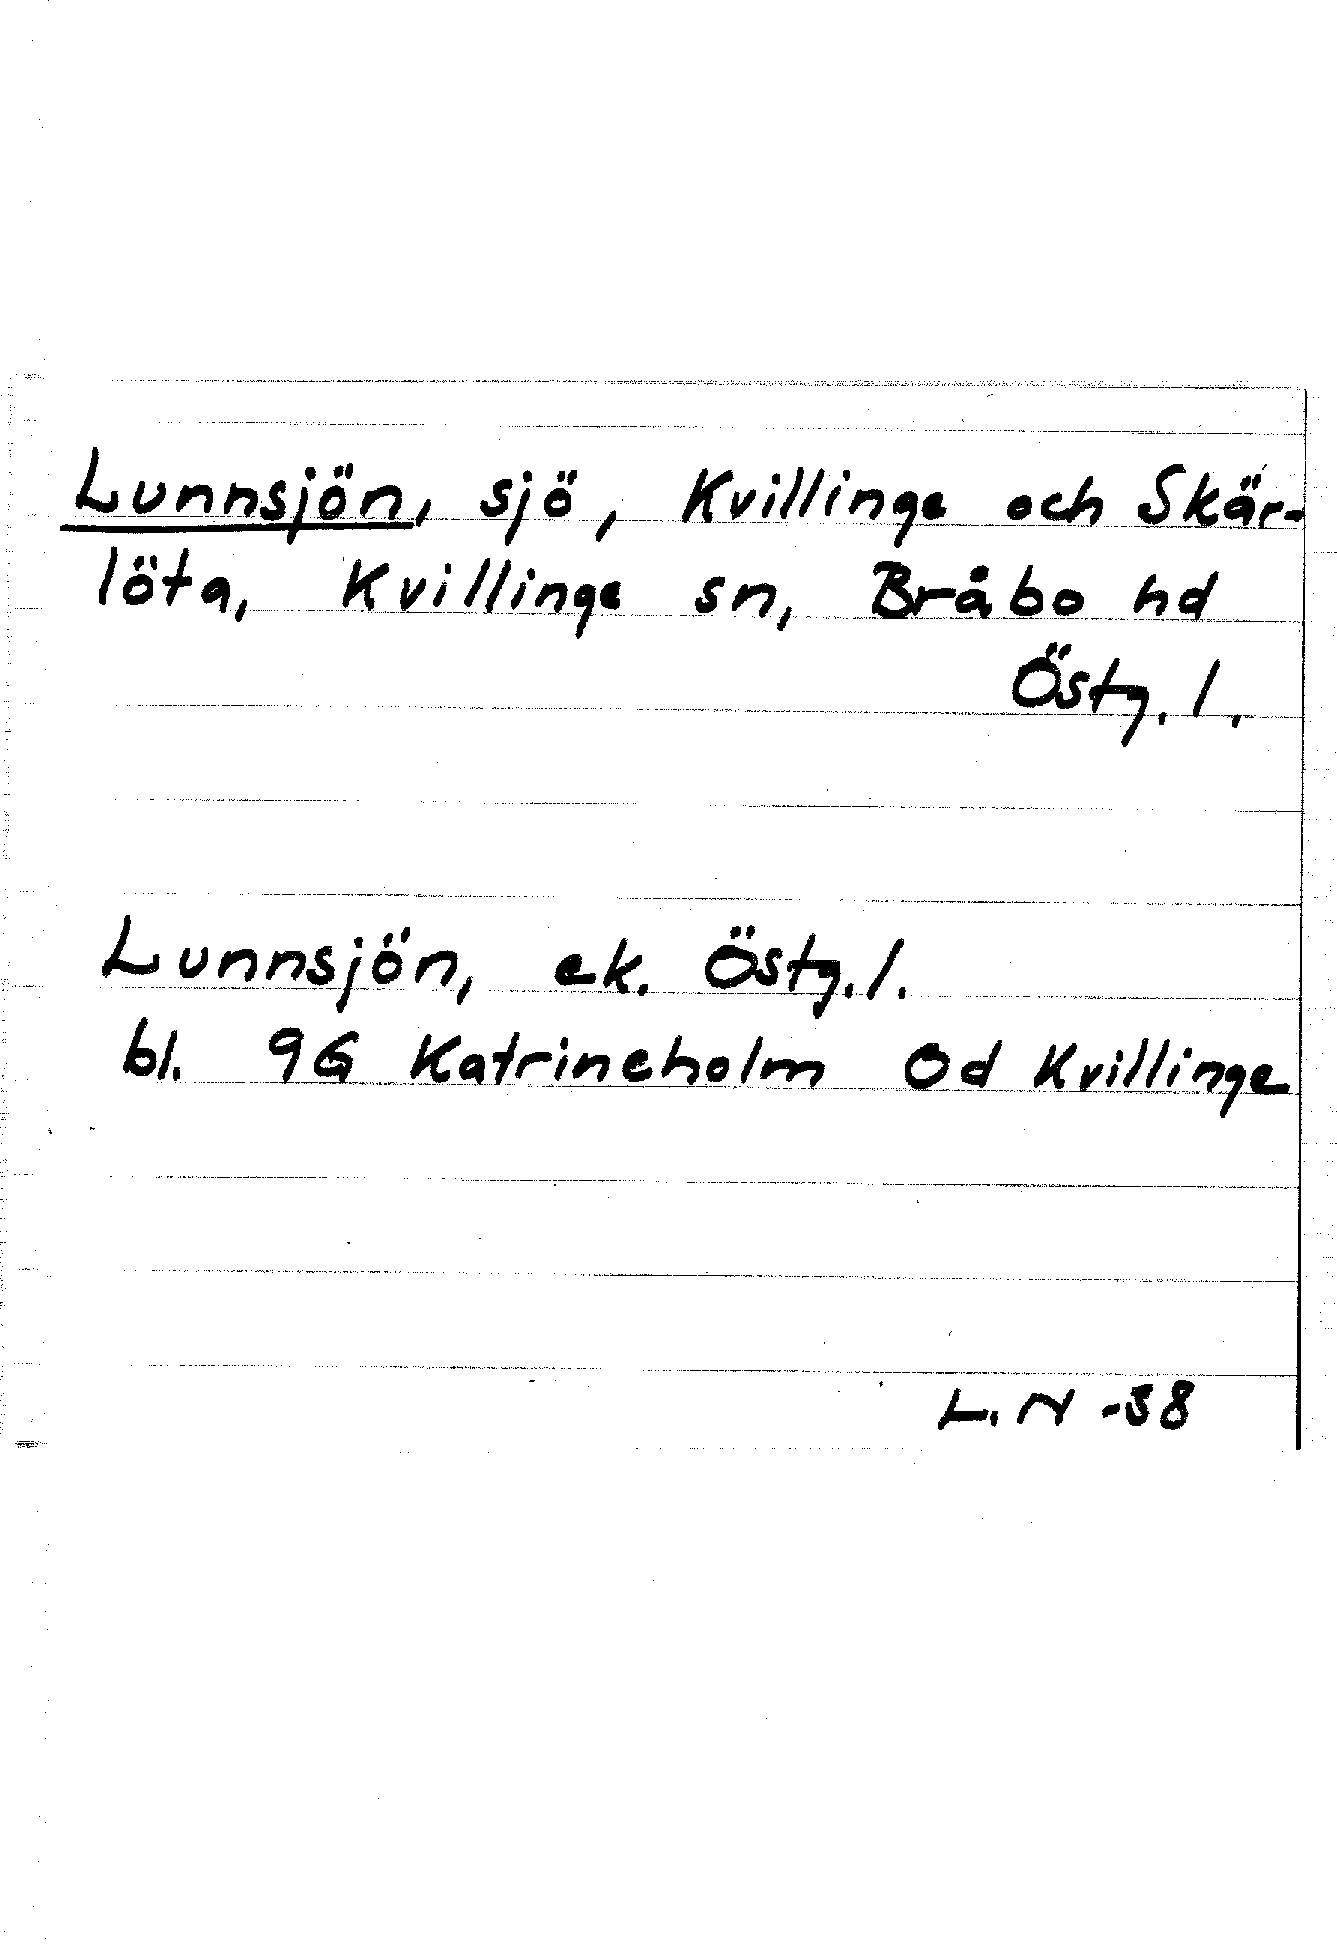 Lunnsjön, sjö, Kvillinge och Skär-
löta, Kvillinge sn, Bråbo hd
Östg. l.
Lunnsjön, ek. Östg. l.
bl. 9G Katrineholm 0d Kvillinge
L. N -38